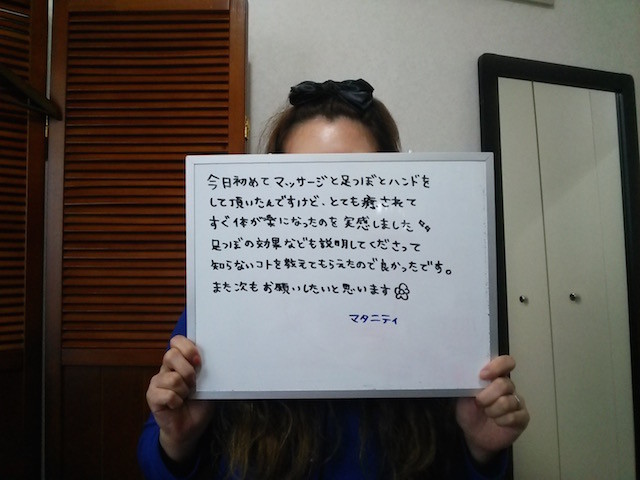 今日初めてマッサージと足つぼとハンドを
して頂いたんですけど、とても癒されて
すぐ体が楽になったのを実感しました
足つぼの効果なども説明してくださって
知らないコトを教えてもらえたので良かったです。
また次もお願いしたいと思います
マタニティ